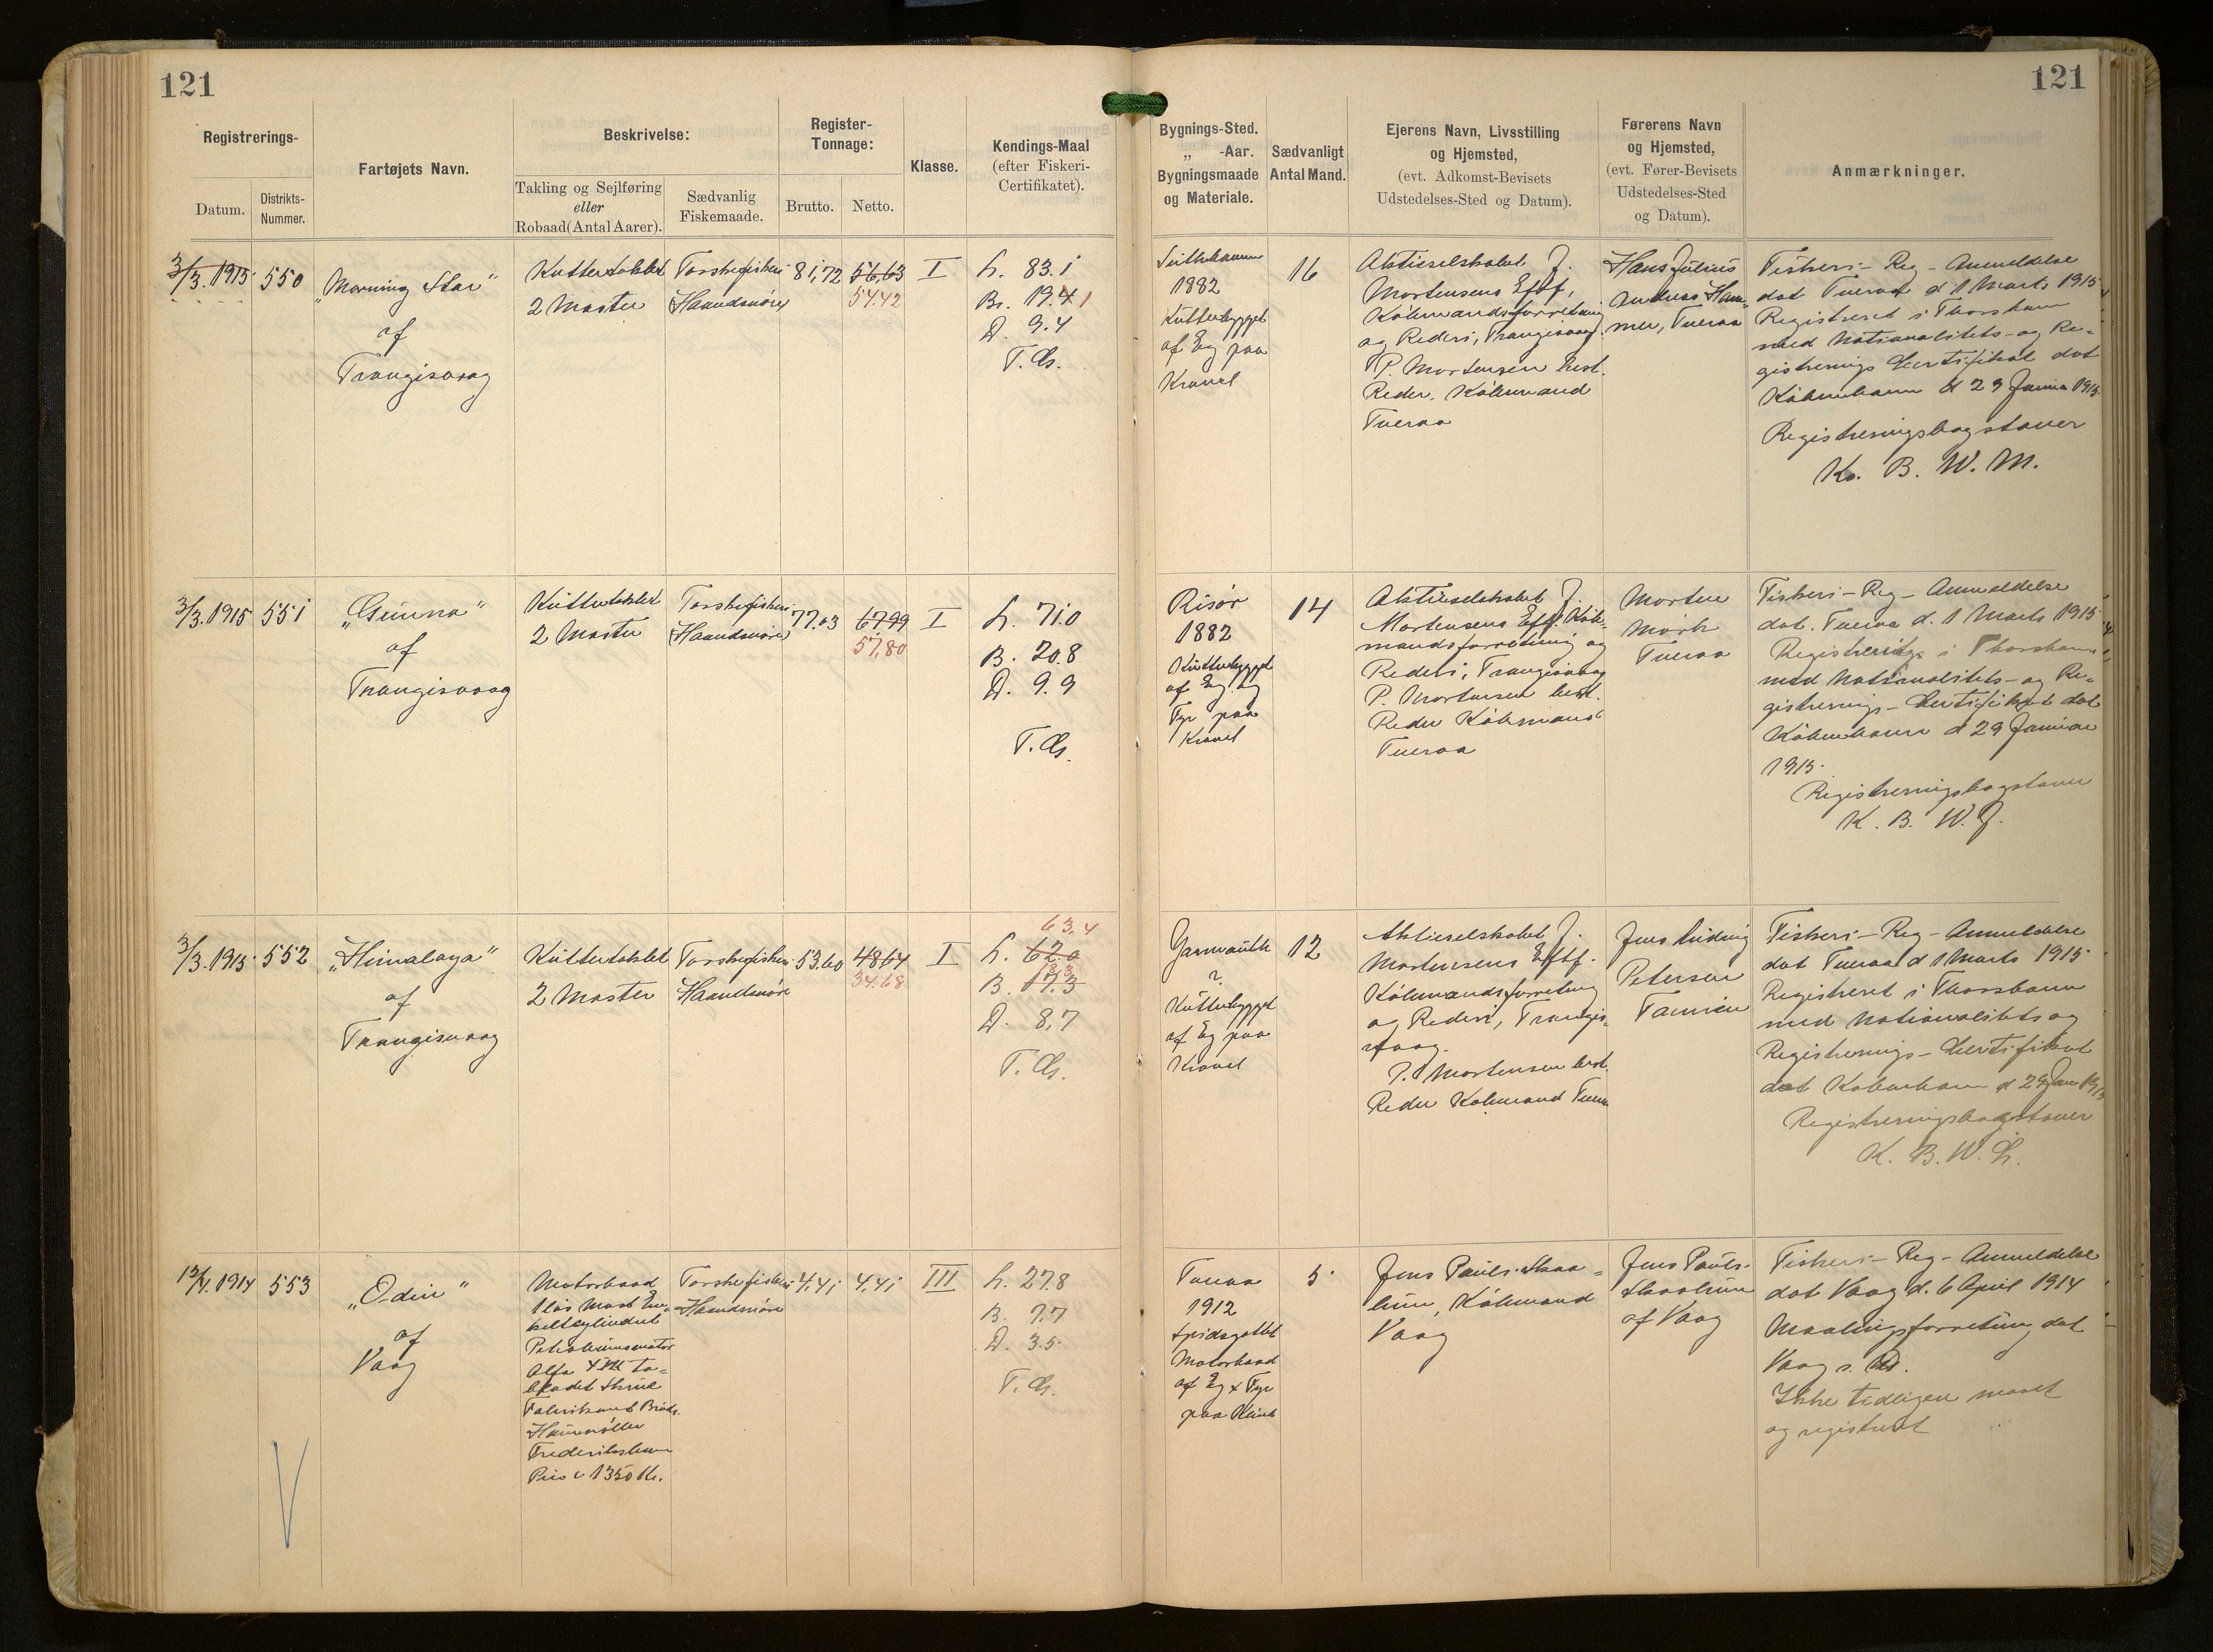 121
121
Registrerings-
Datum.
Distrikts-
Nummer.
Fartøjets Navn.
Beskrivelse:
Takling og Sejlføring
eller
Robaad (Antal Aarer).
Sædvanlig
Fiskemaade.
Register-
Tonnage:
Brutto.
Netto.
Klasse.
Kendings-Maal
(efter Fiskeri-
Certifikatet).
Bygnings-Sted.
„ -Aar.
Bygningsmaade
og Materiale.
Sædvanligt
Antal Mand.
Ejerens Navn, Livsstilling
og Hjemsted,
(evt. Adkomst-Bevisets
Udstedelses-Sted og Datum).
Førerens Navn
og Hjemsted,
(evt. Fører-Bevisets
Udstedelses-Sted
og Datum).
Anmærkninger.
3/3. 1915
550
„Morning Star"
af
Trangisvaag
Kuttertaklet
2 Master
Torskefiskeri
Haandsnøre
81,72
56,63
54.42
I
L. 83.1
Br. 19.4 1
D. 9.4
T. Gs.
1882
Kutterbygget
af Eg paa
Kravel
16
Aktieselskabet J.
Mortensens Eftf.
Købmandsforretning
og Rederi, Trangisvaag.
P. Mortensen best.
Reder, Købmand
Tveraa
Hans Julius
Andreas Ham=
mer, Tveraa
Fiskeri-Reg-Anmeldelse
dat Tveraa d 1 Marts 1915
Registreret i Thorshavn
med Nationalitets- og Re-
gistrerings Certifikat dat
København d 29 Januar 1915.
Registreringsbogstaver
K. B. W. M.
3/3. 1915
551
„Gunna"
af
Trangisvaag
Kuttertaklet
2 Master
Torskefiskeri
Haandsnøre
77.03
67.99
57,80
I
L. 71.0
B. 20.8
D. 9.9
T. Gs.
Risør
1882
Kutterbygget
af Eg og
Fyr paa
Kravel
14
Aktieselskabet J.
Mortensens Eftf. Køb-
mandsforretning og
Rederi, Trangisvaag
P. Mortensen best.
Reder Købmand
Tveraa
Morten
Mørk
Tveraa
Fiskeri-Reg-Anmeldelse
dat. Tveraa d. 1 Marts 1915
i Thorshavn
med Nationalitets- og Re-
gistrerings-Certifikat dat
København d 29 Januar
1915.
Registreringsbogstaver
K. B. W. J.
3/3. 1915
552
„Himalaya"
af
Trangisvaag
Kuttertaklet
2 Master
Torskefiskeri
Haandsnøre
53.60
48.64
34.68
I
63.4
L. 62.0
B. 17.3
D. 8,7
T. Gs.
Yarmouth
?
Kutterbygget
af Eg paa
Kravel
12
Aktieselskabet J.
Mortensens Eftf.
Købmandsforretning
og Rederi, Trangis-
vaag.
P. Mortensen best.
Reder Købmand Tveraa
Jens Ludvig
Petersen
Fiskeri-Reg-Anmeldelse
dat Tveraa d 1 Marts 1915
Registreret i Thorshavn
med Nationalitets og
Registrerings-Certifikat
dat København d 29 Jan 1915
Registreringsbogstaver
K. B. W. L.
12/4. 1914
553
„Odin"
af
Vaag
Motorbaad
1 løs Mast En-
keltcylindret
Petroleumsmotor
Alfa 4 HK to-
bladet Skrue
Fabrikant Brdr.
Houmøller
Frederikshavn
Pris c 1350 Kr.
Torskefiskeri
Haandsnøre
4,41
4,41
III
L. 27.8
B. 7.7
D. 3.5
T. Gs.
Tveraa
1912
Spidsgattet
Motorbaad
af Eg & Fyr
paa Klink
5
Købmand
Vaag
af Vaag
Fiskeri-Reg-Anmeldelse
dat Vaag d. 6 April 1914
Maalingsforretning dat
Vaag s. D.
Ikke tidligere maalt
og registreret